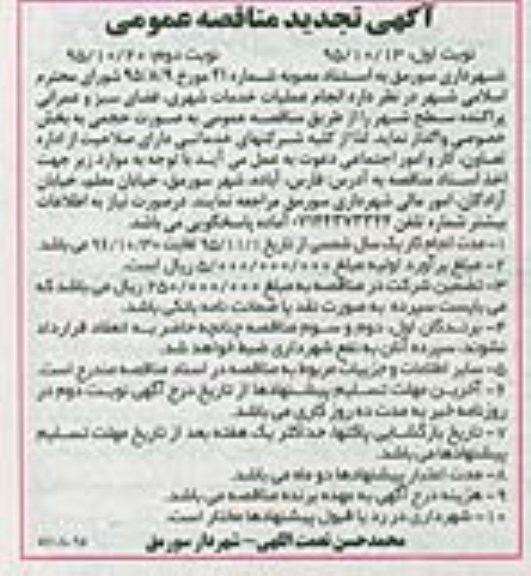 آگهی تجدید مناقصه عمومی
نوبت اول: ۹۵/۱۰/۱۳ نوبت دوم: ۹۵/۱۰/۲۰
شهرداری سورمق به استناد مصوبه شماره ۲۱ مورخ ۹۵/۸/۹ شورای محترم
اسلامی شهر در نظر دارد انجام عملیات خدمات شهری، فضای سبز و عمرانی
پراکنده سطح شهر را از طریق مناقصه عمومی به صورت حجمی به بخش
خصوصی واگذار نماید. لذا از کلیه شرکتهای خدماتی دارای صلاحیت از اداره
تعاون، کار و امور اجتماعی دعوت به عمل می آید با توجه به موارد زیر جهت
اخذ اسناد مناقصه به آدرس: فارس، آباده، شهر سورمق، خیابان معلم، خیابان
آزادگان، امور مالی شهرداری سورمق مراجعه نمایند. درصورت نیاز به اطلاعات
بیشتر شماره تلفن آماده پاسخگویی می باشد.
۱- مدت انجام کار یک سال شمسی از تاریخ ۹۵/۱۱/۱ لغایت ۹۶/۱۰/۳۰ می باشد.
۲- مبلغ برآورد اولیه مبلغ ۵/۰۰۰/۰۰۰/۰۰۰ ریال است.
۳- تضمین شرکت در مناقصه به مبلغ ۲۵۰/۰۰۰/۰۰۰ ریال می باشد که
می بایست سپرده به صورت نقد یا ضمانت نامه بانکی باشد.
۴- برندگان اول، دوم و سوم مناقصه چنانچه حاضر به انعقاد قرارداد
نشوند، سپرده آنان به نفع شهرداری ضبط خواهد شد.
۵- سایر اطلاعات و جزییات مربوط به مناقصه در اسناد مناقصه مندرج است.
۶- آخرین مهلت تسلیم پیشنهادها از تاریخ درج آگهی نوبت دوم در
روزنامه خبر به مدت ده روز کاری می باشد.
۷- تاریخ بازگشایی پاکتها، حداکثر یک هفته بعد از تاریخ مهلت تسلیم
پیشنهادها می باشد.
۸- مدت اعتبار پیشنهادها دو ماه می باشد.
۹- هزینه درج آگهی به عهده برنده مناقصه می باشد.
۱۰- شهرداری در رد یا قبول پیشنهادها مختار است.
محمدحسن نعمت اللهی - شهردار سورمق